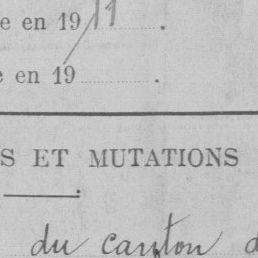 e en 1911.
e en 19 .
S ET MUTATIONS
du canton d